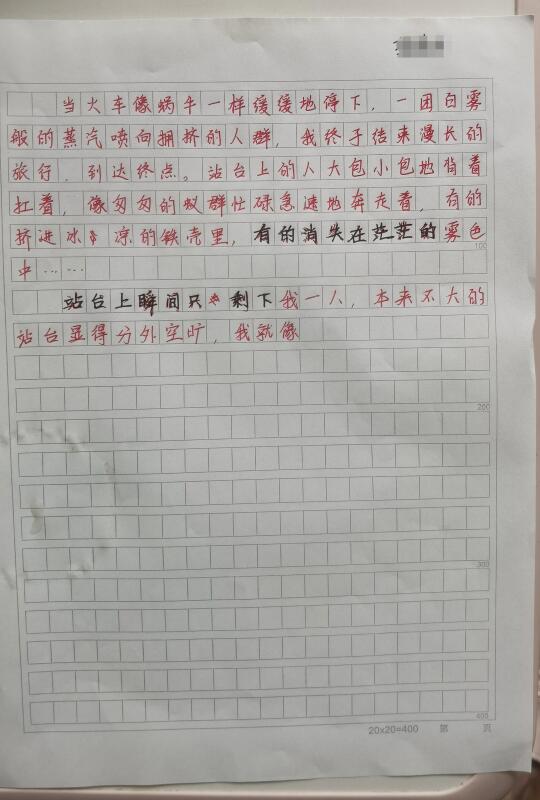 当火车像蜗牛一样缓缓地停下，一团白雾
般的蒸汽喷向拥挤的人群，我终于结束漫长的
旅行，到达终点。站台上的人大包小包地背着
扛着，像匆匆的蚁群忙碌急速地奔走着，有的
挤进冰凉的铁壳里，有的消失在茫茫的雾色
100
中……
站台上瞬间只剩下我一人，本来不大的
站台显得分外空旷，我就像
200
300
400
20×20=400 第 页